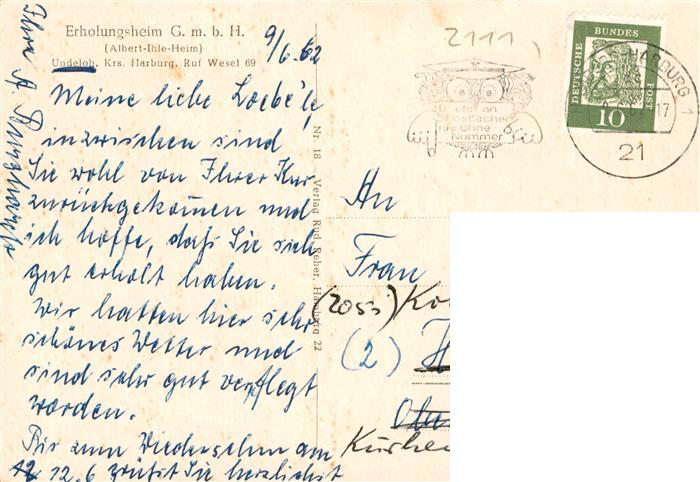 Erholungsheim G. m. b. H.
(Albert-Ihle-Heim)
Undeloh, Krs. Harburg, Ruf Wesel 69
9/6. 62
2111
Meine liebe
inzwischen sind
Sie wohl von Ihrer Kur
zurückgekommen und
ich hoffe, daß Sie sich
gut erholt haben.
Wir hatten hier sehr
schönes Wetter und
sind sehr gut verpflegt
worden.
Bis zum Wiedersehn am
12.6 grüßt Sie herzlichst
Ihre
Nr. 18 Verlag Rud. Reher, Hamburg 22
Briefe an
Postfächer
nie ohne
Nummer
DEUTSCHE BUNDES POST
10
HARBURG 1
21
An
Frau
(2)